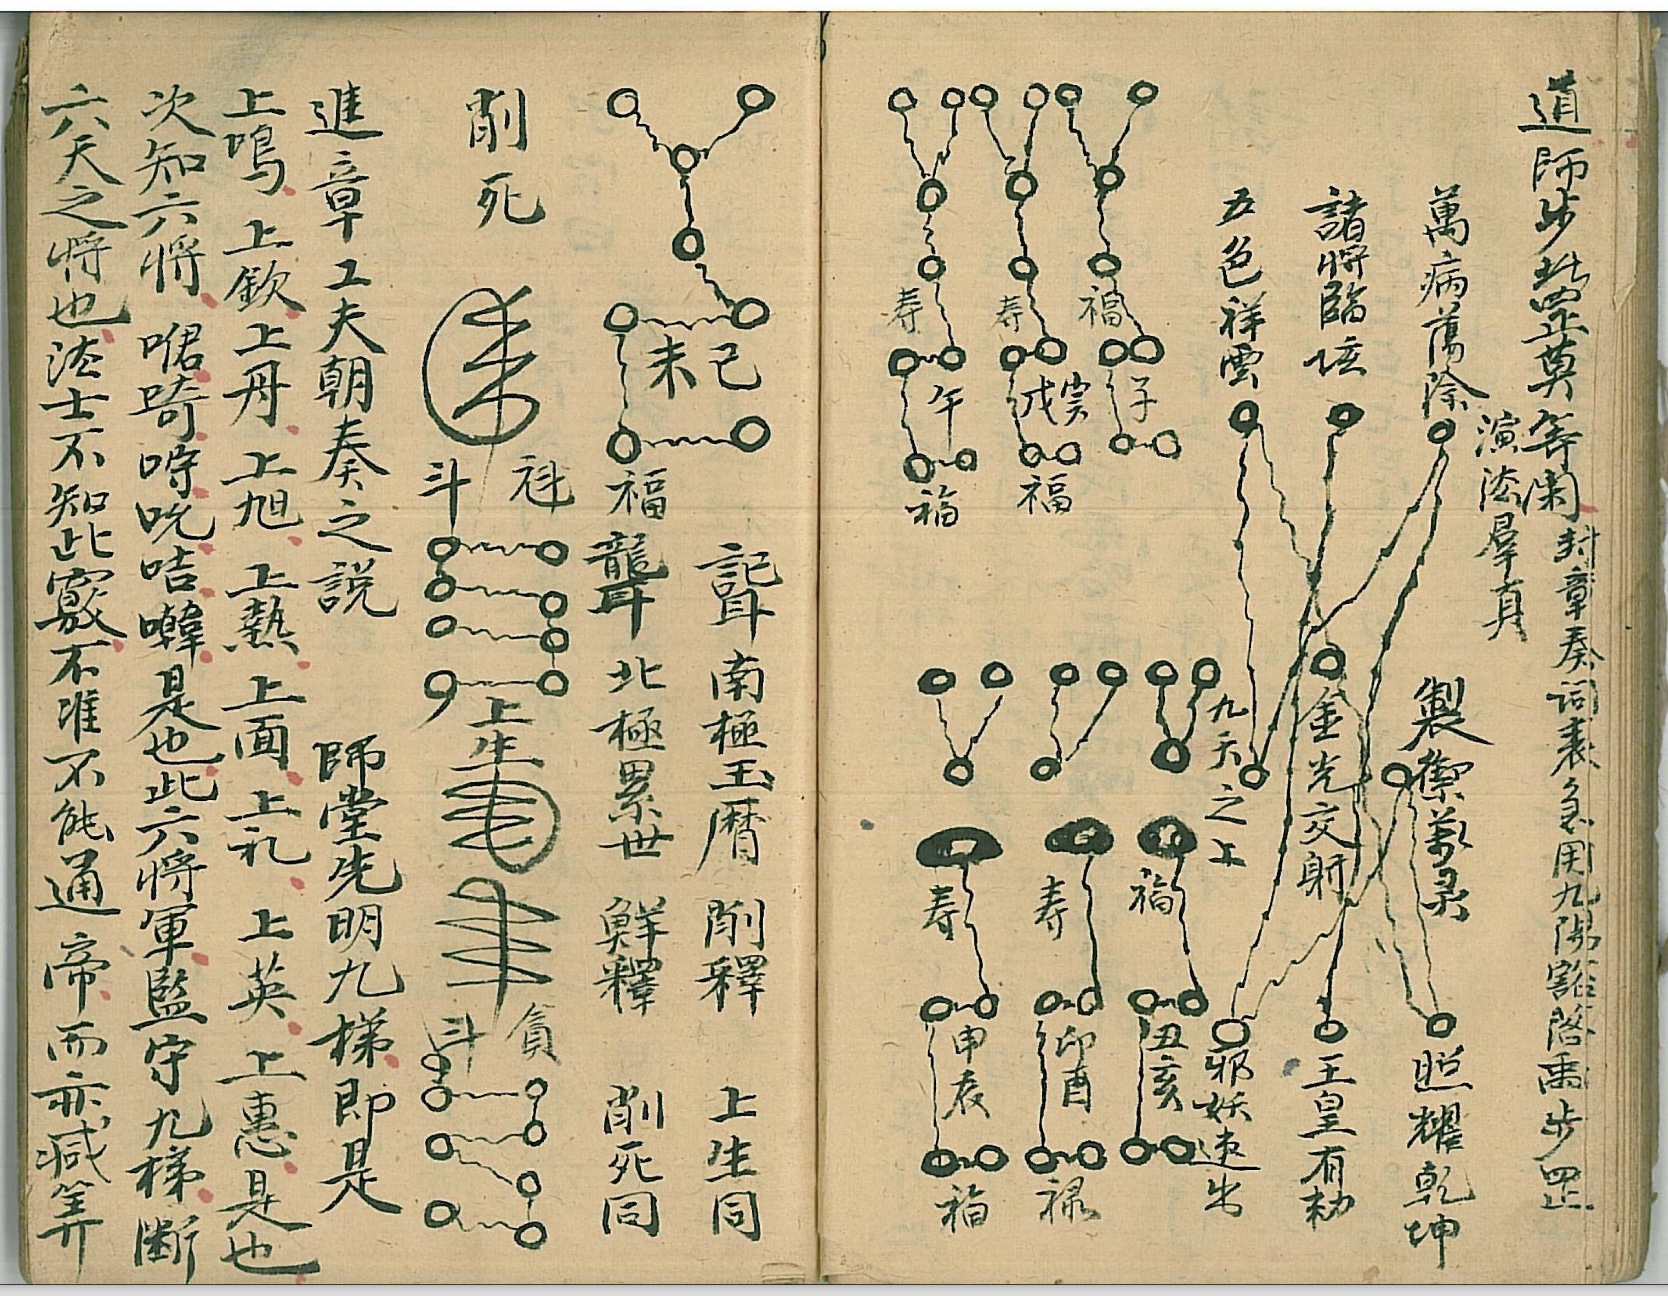 道師步此罡莫等闲
封章奏詞表急用九陽豁落禹步罡
演法羣真
萬病蕩除
製
照耀乾坤
諸將臨垓
金光交射
王皇有勅
五色祥雲
九天之上
邪妖速出
福
子
寿
戌
福
寿
午
福
福
丑亥
寿
卯酉
禄
寿
申辰
福
巳
未
福
南極玉曆 削釋 上生同
北極累世 鮮釋 削死同
削死
魁
斗
上生
貪
斗
進章工夫朝奏之説 師堂先明九梯即是
上鳴上欽上丹上旭上熱上面上礼上英上惠是也
次知六將 喏 是也此六將軍監守九梯斷
六天之將也法士不知此竅不准不能通帝而亦减筭